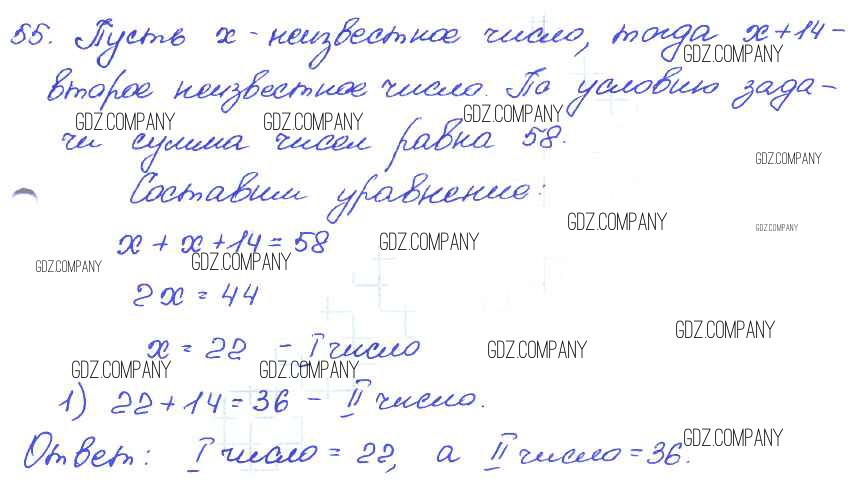 55. Пусть x - неизвестное число, тогда x+14 -
GDZ.COMPANY
второе неизвестное число. По условию зада-
GDZ.COMPANY GDZ.COMPANY GDZ.COMPANY
чи сумма чисел равна 58.
GDZ.COMPANY
Составим уравнение:
GDZ.COMPANY GDZ.COMPANY
x + x + 14 = 58 GDZ.COMPANY
GDZ.COMPANY GDZ.COMPANY
2x = 44
GDZ.COMPANY
x = 22 - I число GDZ.COMPANY
GDZ.COMPANY GDZ.COMPANY
1) 22 + 14 = 36 - II число.
GDZ.COMPANY
Ответ: I число = 22, а II число = 36.